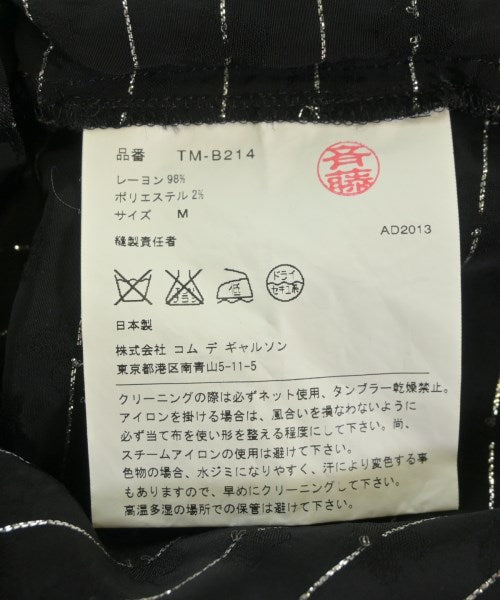 品番 TM-B214
斉藤
レーヨン 98%
ポリエステル 2%
サイズ M
AD2013
縫製責任者
低
ドライ
セキユ系
日本製
株式会社 コム デ ギャルソン
東京都港区南青山5-11-5
クリーニングの際は必ずネット使用、タンブラー乾燥禁止。
アイロンを掛ける場合は、風合いを損なわないように
必ず当て布を使い形を整える程度にして下さい。尚、
スチームアイロンの使用は避けて下さい。
色物の場合、水ジミになりやすく、汗により変色する事
もありますので、早めにクリーニングして下さい。
高温多湿の場所での保管は避けて下さい。